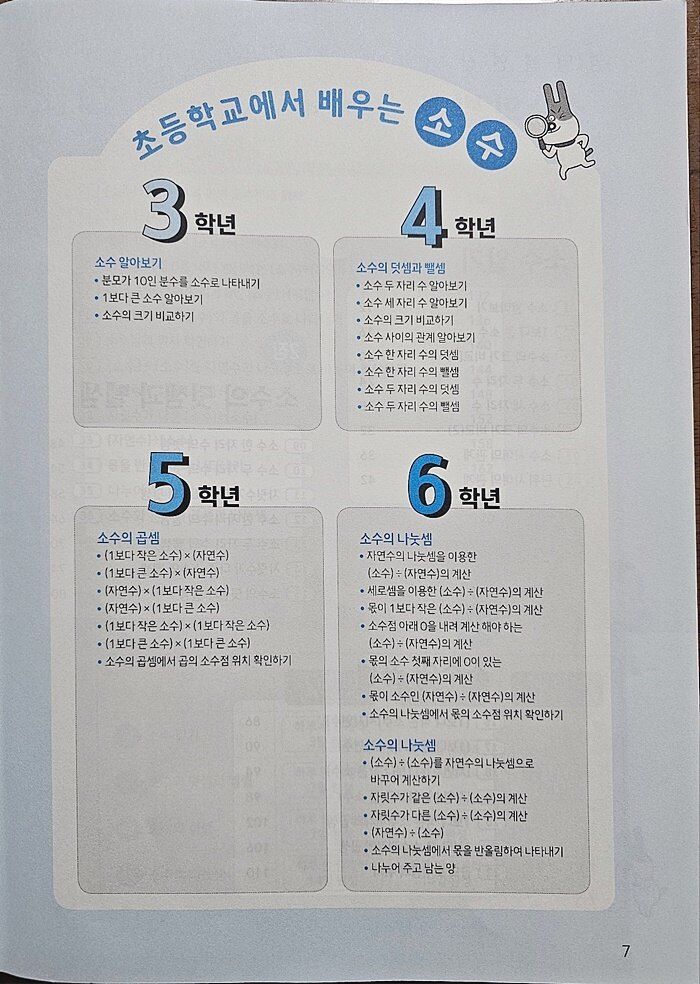 초등학교에서 배우는 소수
3학년
소수 알아보기
• 분모가 10인 분수를 소수로 나타내기
• 1보다 큰 소수 알아보기
• 소수의 크기 비교하기
4학년
소수의 덧셈과 뺄셈
• 소수 두 자리 수 알아보기
• 소수 세 자리 수 알아보기
• 소수의 크기 비교하기
• 소수 사이의 관계 알아보기
• 소수 한 자리 수의 덧셈
• 소수 한 자리 수의 뺄셈
• 소수 두 자리 수의 덧셈
• 소수 두 자리 수의 뺄셈
5학년
소수의 곱셈
• (1보다 작은 소수) × (자연수)
• (1보다 큰 소수) × (자연수)
• (자연수) × (1보다 작은 소수)
• (자연수) × (1보다 큰 소수)
• (1보다 작은 소수) × (1보다 작은 소수)
• (1보다 큰 소수) × (1보다 큰 소수)
• 소수의 곱셈에서 곱의 소수점 위치 확인하기
6학년
소수의 나눗셈
• 자연수의 나눗셈을 이용한
(소수) ÷ (자연수)의 계산
• 세로셈을 이용한 (소수) ÷ (자연수)의 계산
• 몫이 1보다 작은 (소수) ÷ (자연수)의 계산
• 소수점 아래 0을 내려 계산 해야 하는
(소수) ÷ (자연수)의 계산
• 몫의 소수 첫째 자리에 0이 있는
(소수) ÷ (자연수)의 계산
• 몫이 소수인 (자연수) ÷ (자연수)의 계산
• 소수의 나눗셈에서 몫의 소수점 위치 확인하기
소수의 나눗셈
• (소수) ÷ (소수)를 자연수의 나눗셈으로
바꾸어 계산하기
• 자릿수가 같은 (소수) ÷ (소수)의 계산
• 자릿수가 다른 (소수) ÷ (소수)의 계산
• (자연수) ÷ (소수)
• 소수의 나눗셈에서 몫을 반올림하여 나타내기
• 나누어 주고 남는 양
7